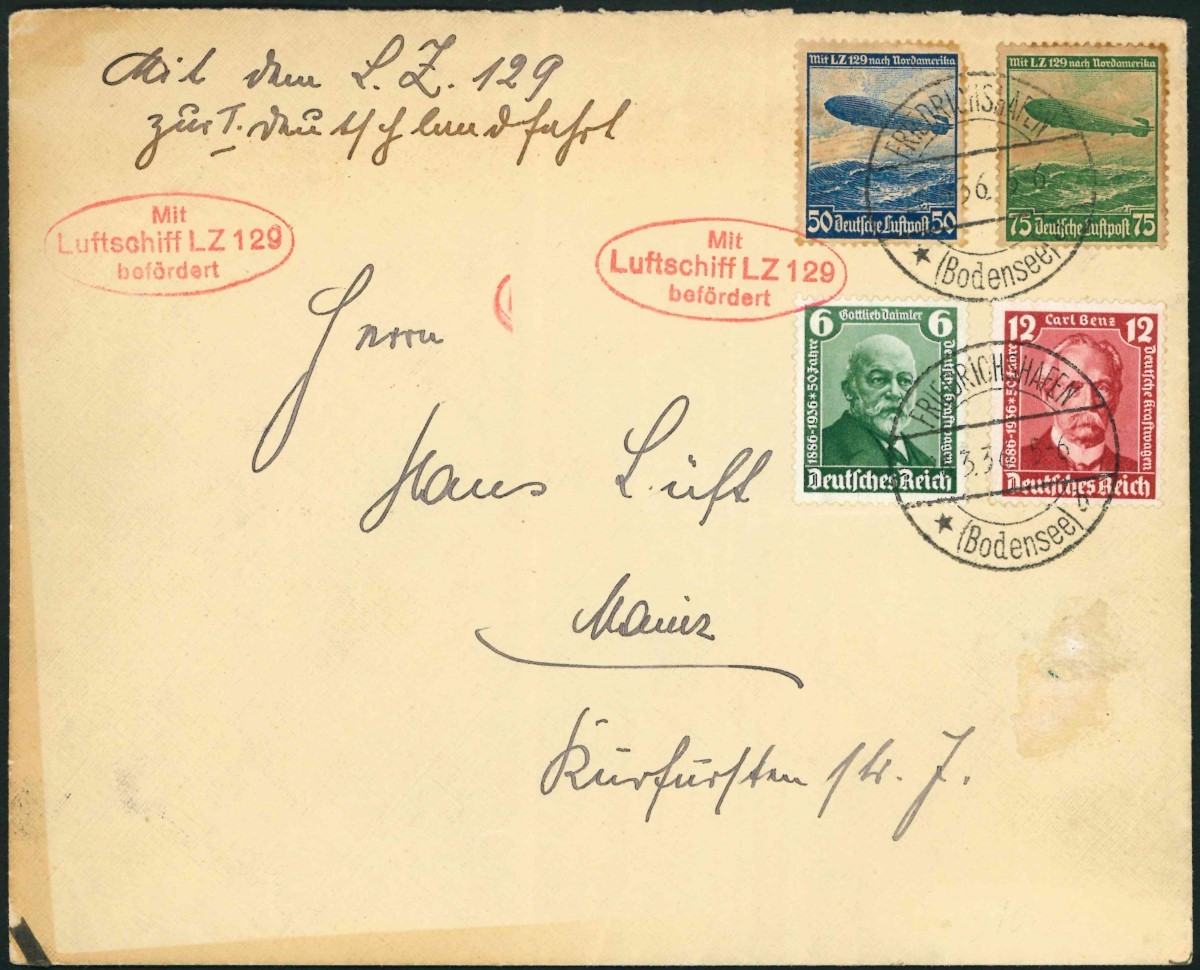 Mit dem L. Z. 129
zur I. deutschlandfahrt
Mit
Luftschiff LZ 129
befördert
Mit
Luftschiff LZ 129
befördert
Mit LZ 129 nach Nordamerika
50 Deutsche Luftpost 50
Mit LZ 129 nach Nordamerika
75 Deutsche Luftpost 75
FRIEDRICHSHAFEN
(Bodensee)
6 Gottlieb Daimler 6
1886-1936 * 50 Jahre
Deutsche Kraftwagen
Deutsches Reich
12 Carl Benz 12
1886-1936 * 50 Jahre
Deutsche Kraftwagen
Deutsches Reich
FRIEDRICHSHAFEN
(Bodensee)
Herrn
Hans Lüft
Mainz
Kurfürsten str. 7.